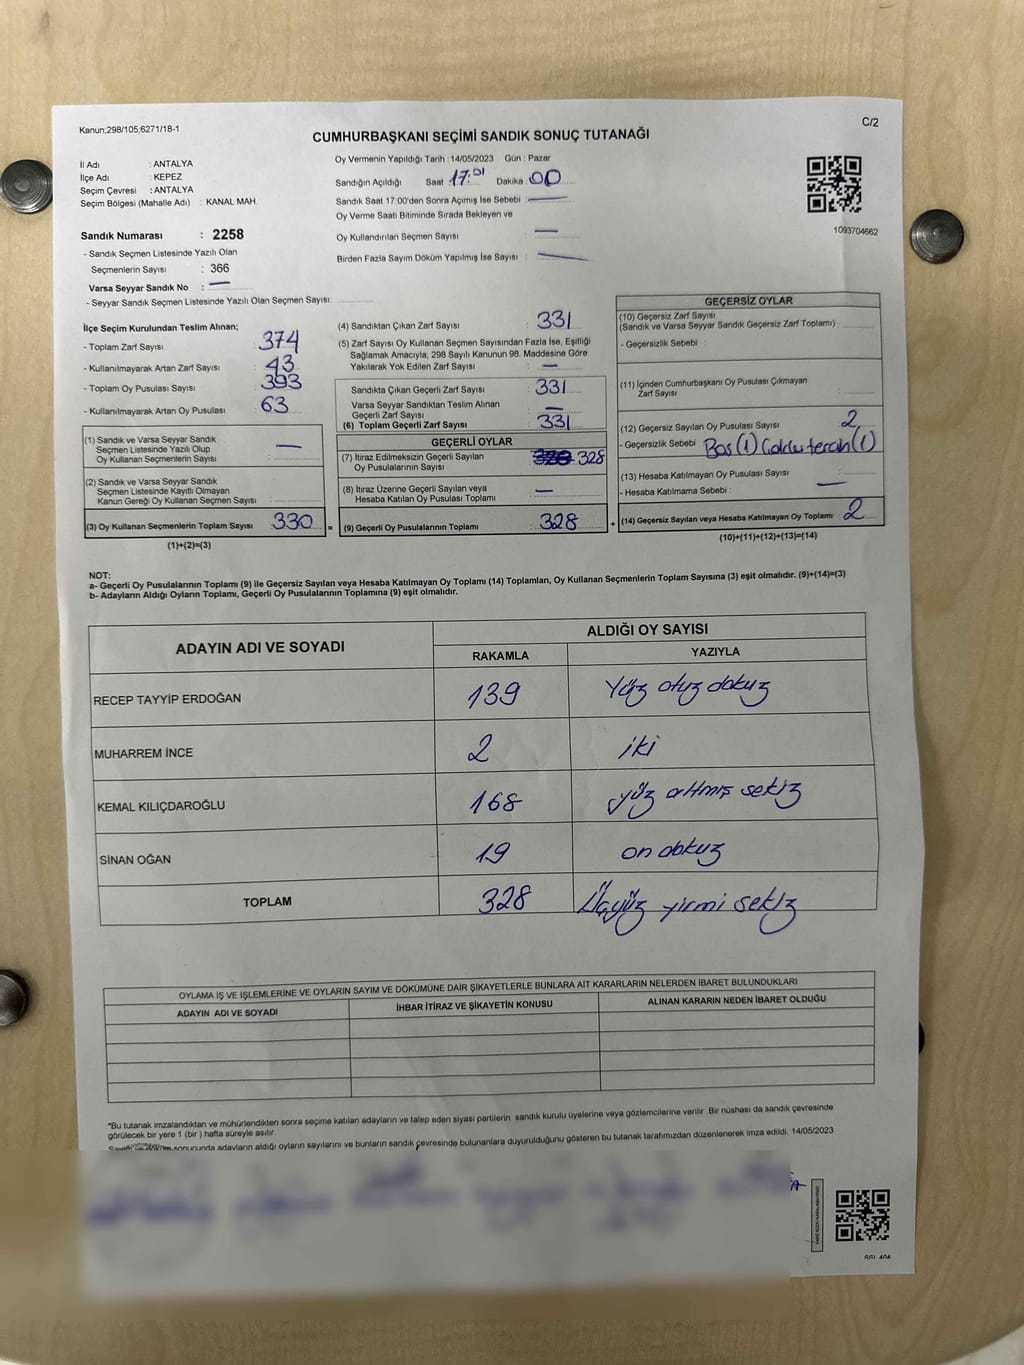 Kanun;298/105;6271/18-1
C/2
CUMHURBAŞKANI SEÇİMİ SANDIK SONUÇ TUTANAĞI
İl Adı : ANTALYA
İlçe Adı : KEPEZ
Seçim Çevresi : ANTALYA
Seçim Bölgesi (Mahalle Adı) : KANAL MAH.
Sandık Numarası : 2258
- Sandık Seçmen Listesinde Yazılı Olan
Seçmenlerin Sayısı : 366
Varsa Seyyar Sandık No : —
- Seyyar Sandık Seçmen Listesinde Yazılı Olan Seçmen Sayısı:
Oy Vermenin Yapıldığı Tarih :14/05/2023 Gün : Pazar
Sandığın Açıldığı Saat 17:01 Dakika 00
Sandık Saat 17.00'den Sonra Açımış İse Sebebi —
Oy Verme Saati Bitiminde Sırada Bekleyen ve
Oy Kullandırılan Seçmen Sayısı : —
Birden Fazla Sayım Döküm Yapılmış İse Sayısı : —
1093704662
İlçe Seçim Kurulundan Teslim Alınan;
- Toplam Zarf Sayısı : 374
- Kullanılmayarak Artan Zarf Sayısı : 43
- Toplam Oy Pusulası Sayısı : 393
- Kullanılmayarak Artan Oy Pusulası : 63
(1) Sandık ve Varsa Seyyar Sandık
Seçmen Listesinde Yazılı Olup
Oy Kullanan Seçmenlerin Sayısı : —
(2) Sandık ve Varsa Seyyar Sandık
Seçmen Listesinde Kayıtlı Olmayan
Kanun Gereği Oy Kullanan Seçmen Sayısı :
(3) Oy Kullanan Seçmenlerin Toplam Sayısı : 330 =
(1)+(2)=(3)
(4) Sandıktan Çıkan Zarf Sayısı : 331
(5) Zarf Sayısı Oy Kullanan Seçmen Sayısından Fazla İse, Eşitliği
Sağlamak Amacıyla; 298 Sayılı Kanunun 98. Maddesine Göre
Yakılarak Yok Edilen Zarf Sayısı : —
Sandıkta Çıkan Geçerli Zarf Sayısı : 331
Varsa Seyyar Sandıktan Teslim Alınan
Geçerli Zarf Sayısı : —
(6) Toplam Geçerli Zarf Sayısı : 331
GEÇERLİ OYLAR
(7) İtiraz Edilmeksizin Geçerli Sayılan
Oy Pusulalarının Sayısı : 328
(8) İtiraz Üzerine Geçerli Sayılan veya
Hesaba Katılan Oy Pusulası Toplamı : —
(9) Geçerli Oy Pusulalarının Toplamı : 328 +
GEÇERSİZ OYLAR
(10) Geçersiz Zarf Sayısı
(Sandık ve Varsa Seyyar Sandık Geçersiz Zarf Toplamı) :
- Geçersizlik Sebebi :
(11) İçinden Cumhurbaşkanı Oy Pusulası Çıkmayan
Zarf Sayısı :
(12) Geçersiz Sayılan Oy Pusulası Sayısı : 2
- Geçersizlik Sebebi : Boş (1) Çoklu tercih (1)
(13) Hesaba Katılmayan Oy Pusulası Sayısı : —
- Hesaba Katılmama Sebebi :
(14) Geçersiz Sayılan veya Hesaba Katılmayan Oy Toplamı : 2
(10)+(11)+(12)+(13)=(14)
NOT:
a- Geçerli Oy Pusulalarının Toplamı (9) ile Geçersiz Sayılan veya Hesaba Katılmayan Oy Toplamı (14) Toplamları, Oy Kullanan Seçmenlerin Toplam Sayısına (3) eşit olmalıdır. (9)+(14)=(3)
b- Adayların Aldığı Oyların Toplamı, Geçerli Oy Pusulalarının Toplamına (9) eşit olmalıdır.
ADAYIN ADI VE SOYADI
ALDIĞI OY SAYISI
RAKAMLA YAZIYLA
RECEP TAYYİP ERDOĞAN 139 Yüz otuz dokuz
MUHARREM İNCE 2 iki
KEMAL KILIÇDAROĞLU 168 yüz altmış sekiz
SİNAN OĞAN 19 on dokuz
TOPLAM 328 Üçyüz yirmi sekiz
OYLAMA İŞ VE İŞLEMLERİNE VE OYLARIN SAYIM VE DÖKÜMÜNE DAİR ŞİKAYETLERLE BUNLARA AİT KARARLARIN NELERDEN İBARET BULUNDUKLARI
ADAYIN ADI VE SOYADI İHBAR İTİRAZ VE ŞİKAYETİN KONUSU ALINAN KARARIN NEDEN İBARET OLDUĞU
*Bu tutanak imzalandıktan ve mühürlendikten sonra seçime katılan adayların ve talep eden siyasi partilerin sandık kurulu üyelerine veya gözlemcilerine verilir .Bir nüshası da sandık çevresinde
görülecek bir yere 1 (bir ) hafta süreyle asılır.
sonucunda adayların aldığı oyların sayılarını ve bunların sandık çevresinde bulunanlara duyurulduğunu gösteren bu tutanak tarafımızdan düzenlenerek imza edildi. 14/05/2023